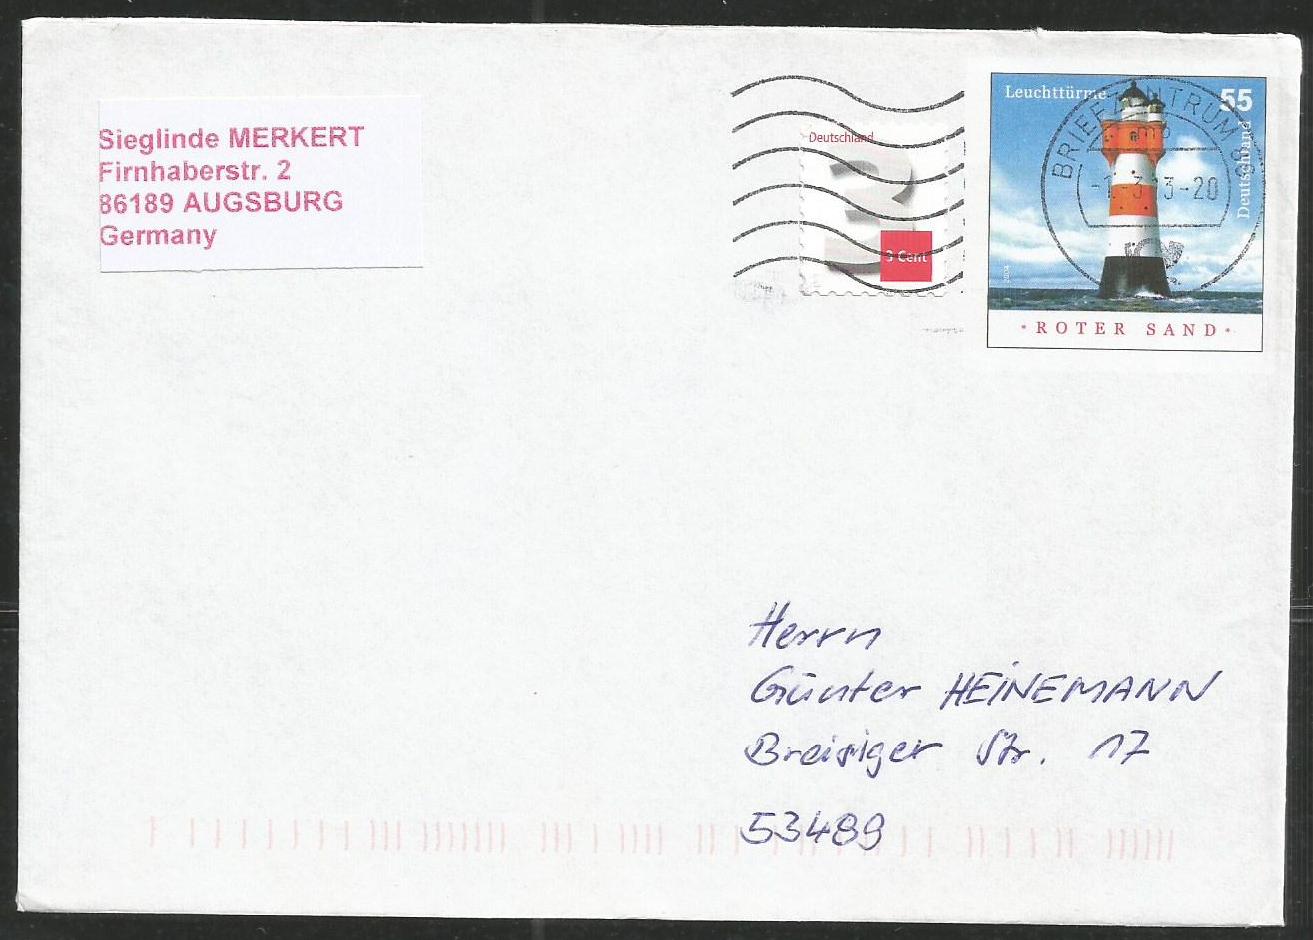 Sieglinde MERKERT
Firnhaberstr. 2
86189 AUGSBURG
Germany
Deutschland
3 Cent
Leuchttürme
55
Deutschland
2004
BRIEFZENTRUM
-20
* ROTER SAND *
Herrn
Günter HEINEMANN
Breisiger Str. 17
53489